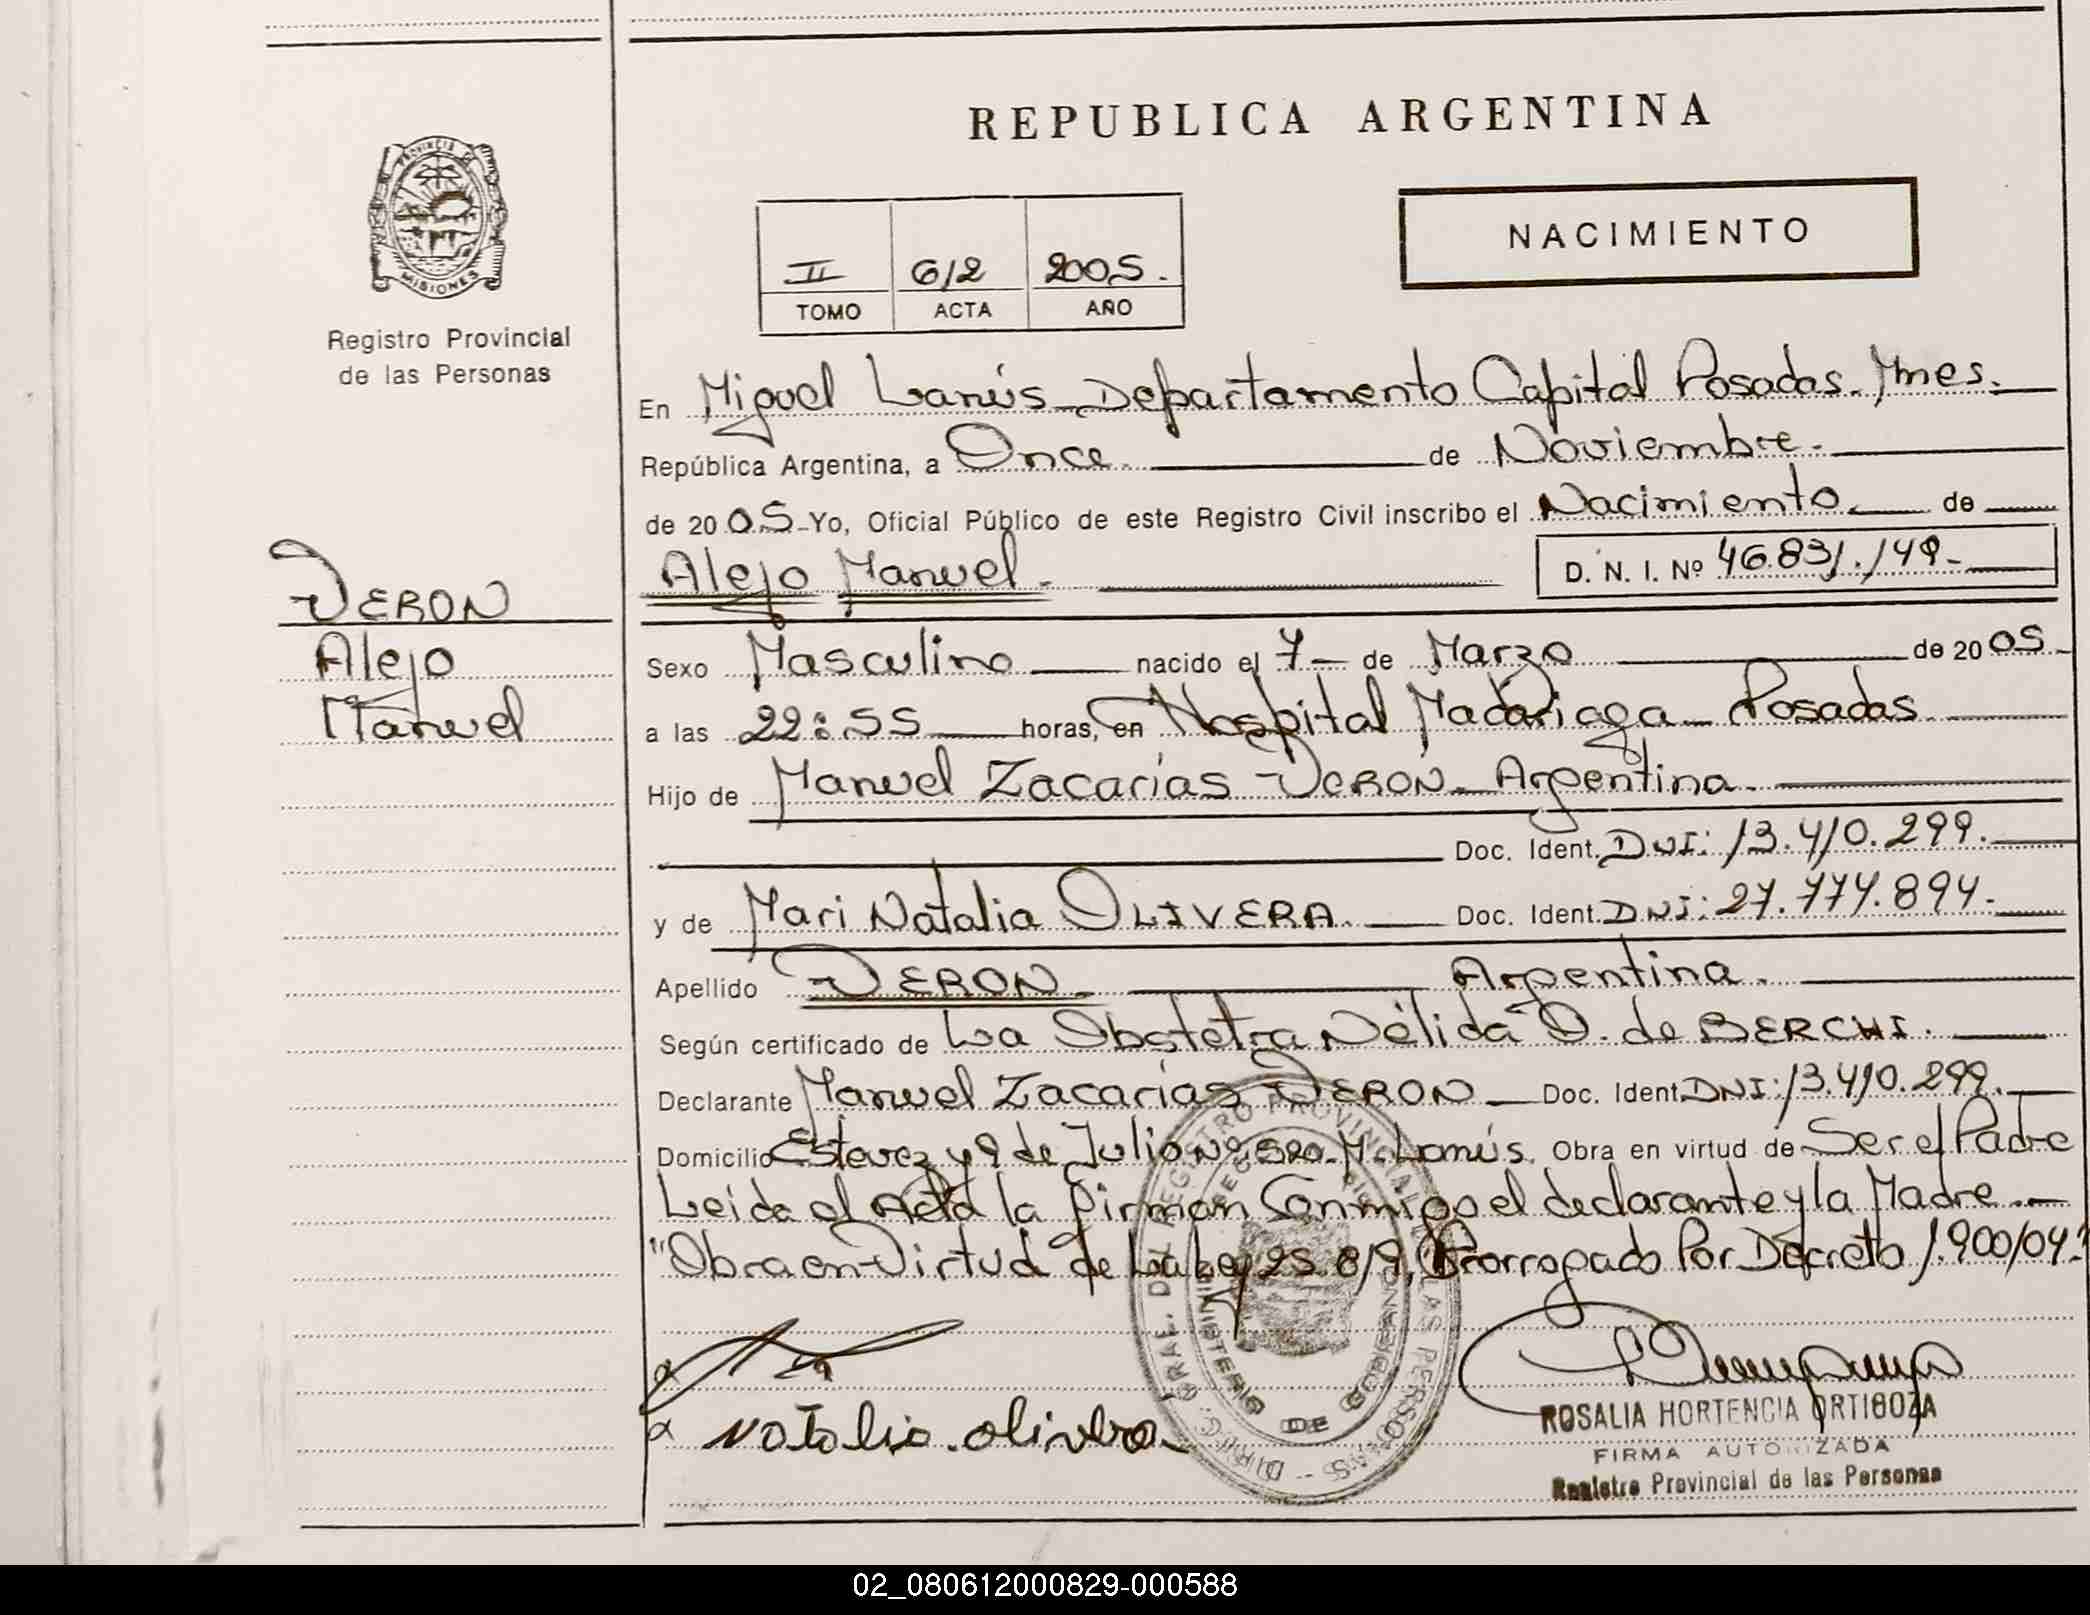 REPUBLICA ARGENTINA
NACIMIENTO
II 612 2005.
TOMO ACTA AÑO
PROVINCIA DE
MISIONES
Registro Provincial
de las Personas
En Miguel Lanús Departamento Capital Posadas. Mnes.
República Argentina, a Once. de Noviembre.
de 2005 Yo, Oficial Público de este Registro Civil inscribo el Nacimiento de
Alejo Manuel. D. N. I. Nº 46.831.149.
DERON
Alejo
Manuel
Sexo Masculino nacido el 7 de Marzo de 2005
a las 22:55 horas, en Hospital Madariaga Posadas
Hijo de Manuel Zacarías DERON Argentina.
Doc. Ident. DNI: 13.410.299.
y de Mari Natalia OLIVERA. Doc. Ident. DNI: 27.777.894.
Apellido DERON Argentina.
Según certificado de La Obstetra Nélida O. de BERCHI.
Declarante Manuel Zacarías DERON Doc. Ident. DNI: 13.410.299.
Domicilio Estevez y 9 de Julio Nº M. Lanús. Obra en virtud de Ser el Padre
Leida el Acta la firman Conmigo el declarante y la Madre.
"Obra en Virtud de La Ley 25.819, Prorrogado Por Decreto 1.900/04."
Natalia Olivera
DIREC. GRAL. DEL REGISTRO PROVINCIAL DE LAS PERSONAS
MINISTERIO DE GOBIERNO
ROSALIA HORTENCIA ORTIGOZA
FIRMA AUTORIZADA
Registro Provincial de las Personas
02_080612000829-000588